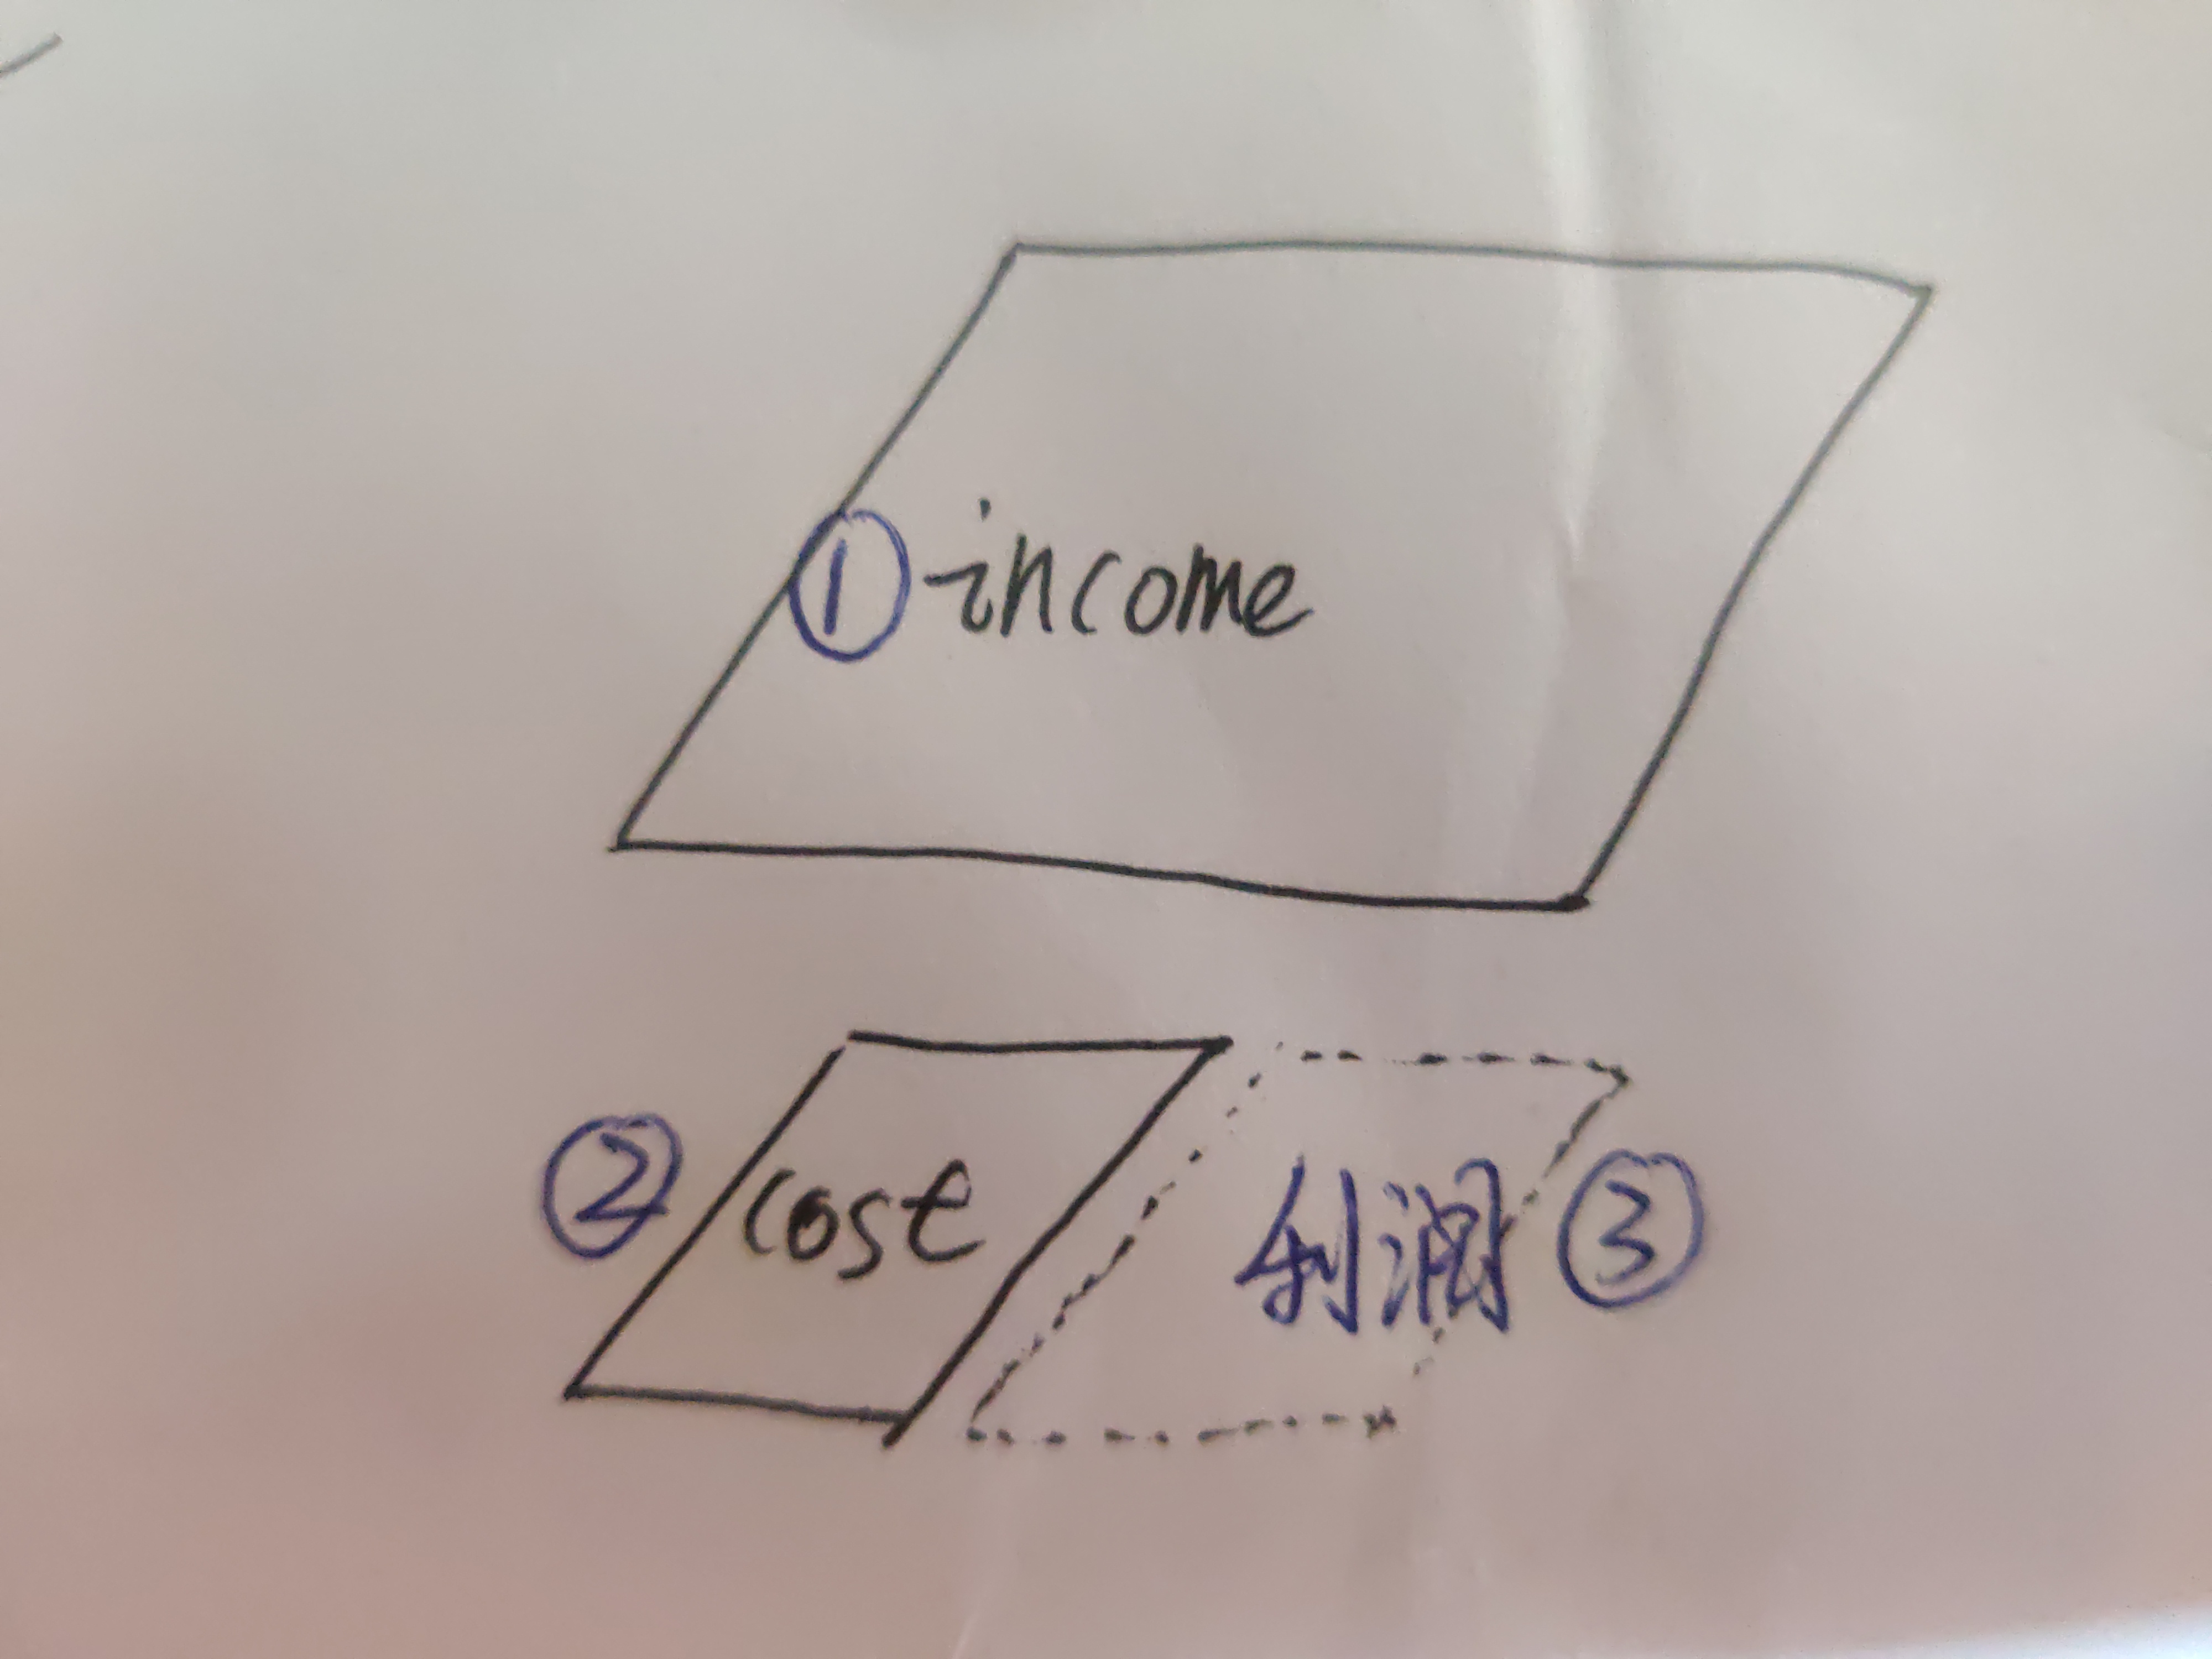 ①income
②cost
利润③